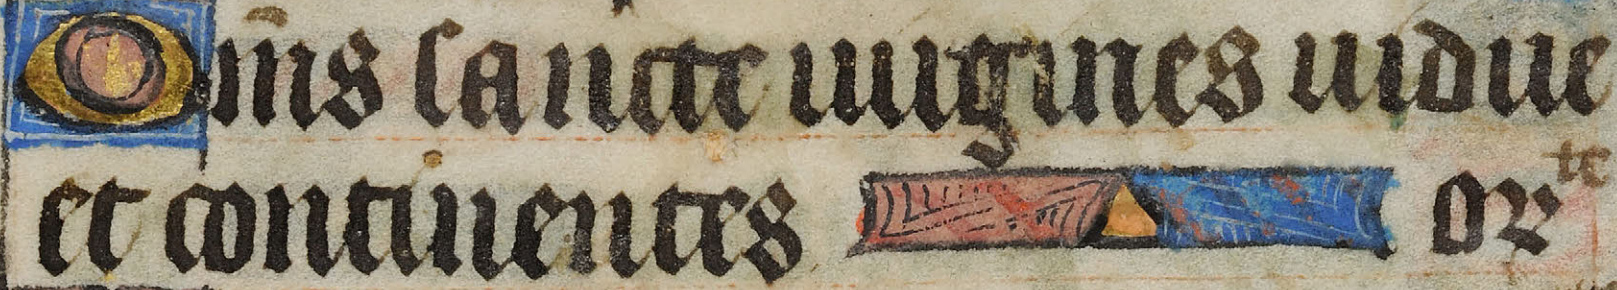 Om̄s sancte uirgines uidue
et continentes orᵗᵉ